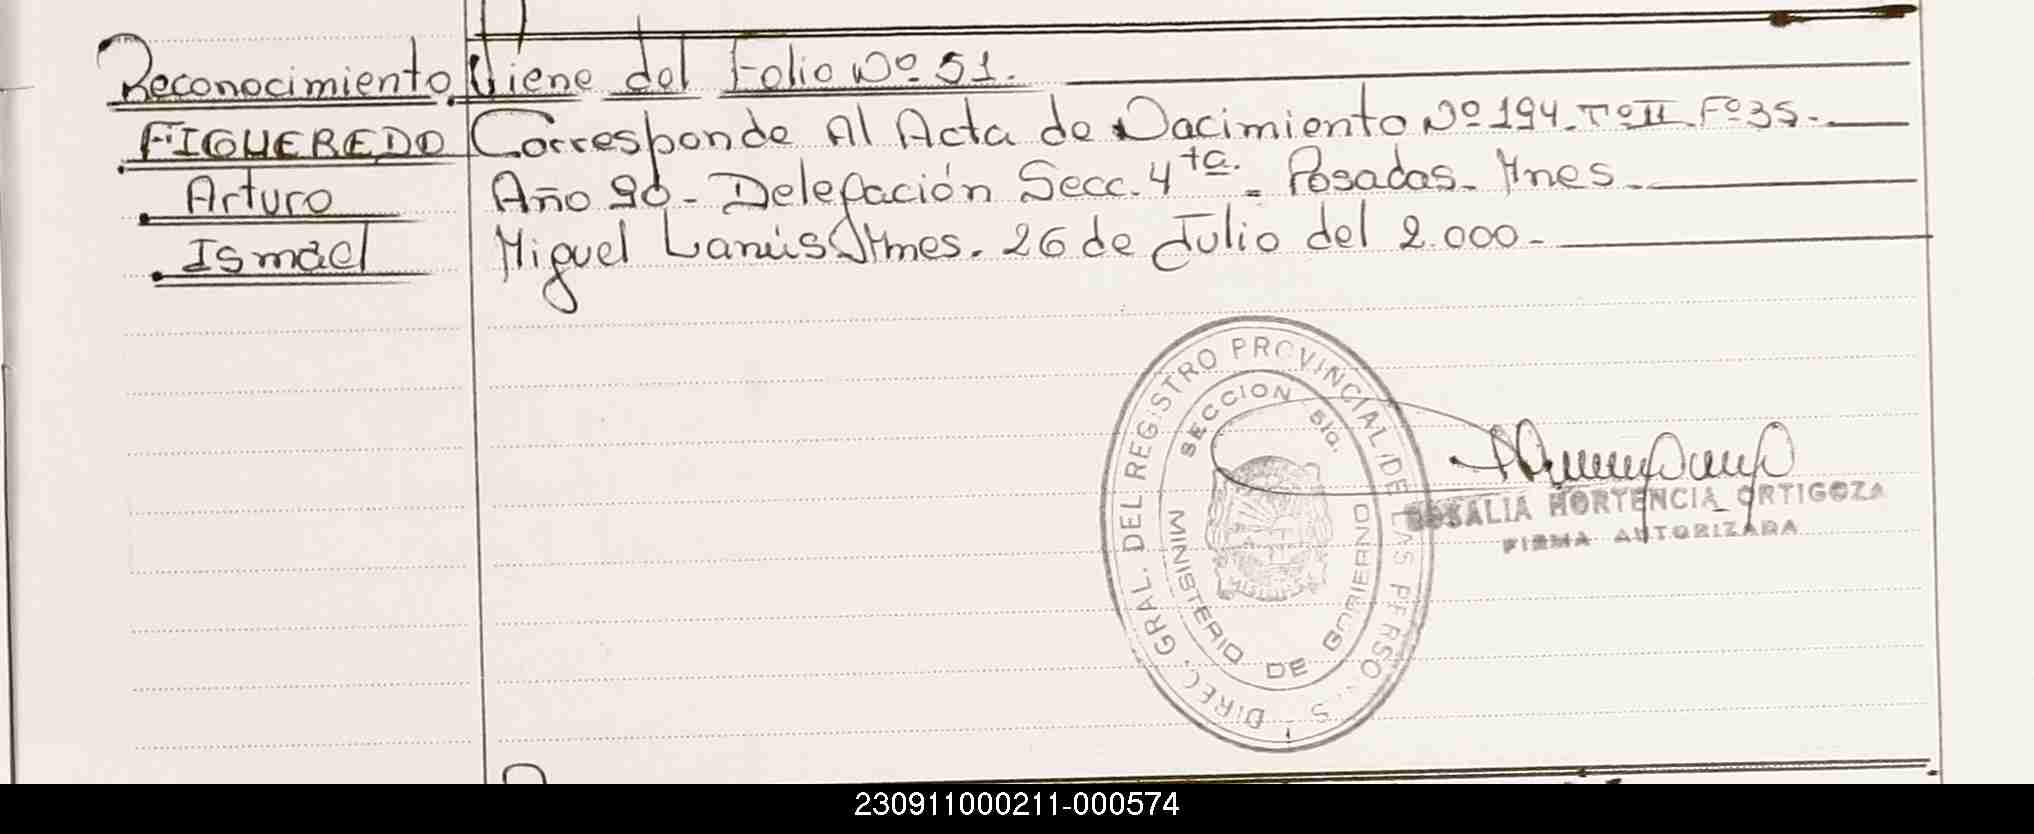 Reconocimiento Viene del Folio Nº 51.
FIGUEREDO Corresponde Al Acta de Nacimiento Nº 194. Tº II. Fº 35.
Arturo Año 90 - Delegación Secc. 4ta. - Posadas - Mnes.
Ismael Miguel Lanús Mnes. 26 de Julio del 2.000 -
DIREC. GRAL. DEL REGISTRO PROVINCIAL DE LAS PERSONAS
SECCION 5ta.
MINISTERIO DE GOBIERNO
ROSALIA HORTENCIA ORTIGOZA
FIRMA AUTORIZADA
230911000211-000574